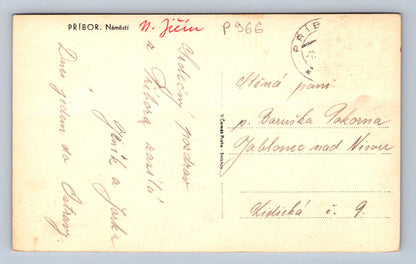 PŘÍBOR. Náměstí
N. Jičín
P966
PŘÍB
Srdečný pozdrav
z Příbora zasílá
Jeník a Jarka
Dnes jedem do Ostravy.
V. Čermák Praha
Ctěná paní
p. Baruška Pokorna
Jablonec nad Nisou
Lidická č. 9.